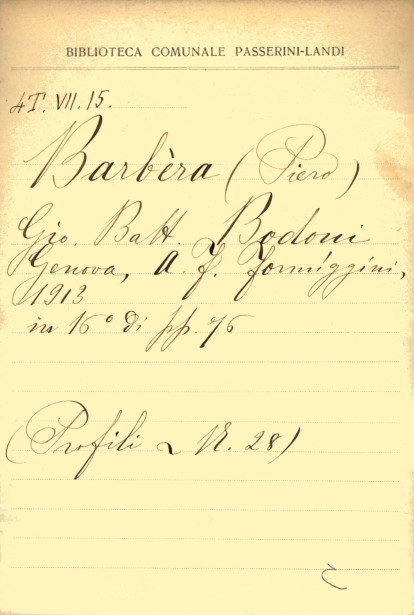 BIBLIOTECA COMUNALE PASSERINI-LANDI
4T. VII. 15.
Barbèra (Piero)
Gio. Batt. Bodoni
Genova, A. f. formiggini,
1913
in 16° di pp. 76
(Profili ~ N. 28)